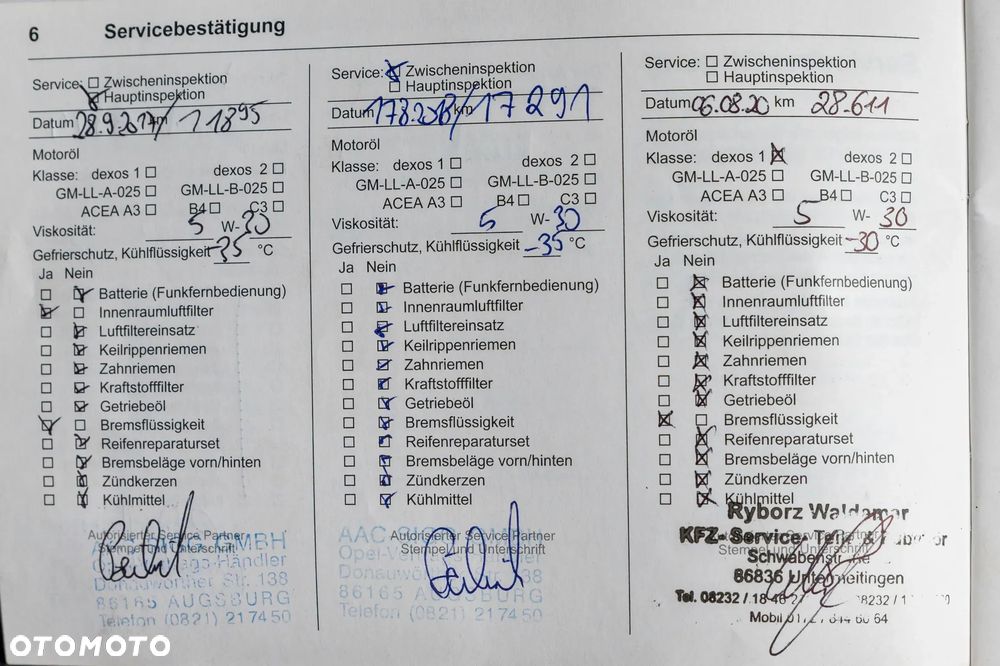 6 Servicebestätigung
Service: Zwischeninspektion
Hauptinspektion
Datum 28.9.2017 km 11895
Motoröl
Klasse: dexos 1 dexos 2
GM-LL-A-025 GM-LL-B-025
ACEA A3 B4 C3
Viskosität: 5 W-30
Gefrierschutz, Kühlflüssigkeit -35 °C
Ja Nein
Batterie (Funkfernbedienung)
Innenraumluftfilter
Luftfiltereinsatz
Keilrippenriemen
Zahnriemen
Kraftstofffilter
Getriebeöl
Bremsflüssigkeit
Reifenreparaturset
Bremsbeläge vorn/hinten
Zündkerzen
Kühlmittel
Autorisierter Service Partner
Stempel und Unterschrift
GMBH
Händler
Donauwörther Str. 138
86165 AUGSBURG
Telefon (0821) 217450
Service: Zwischeninspektion
Hauptinspektion
Datum 17.8.2018 km 17291
Motoröl
Klasse: dexos 1 dexos 2
GM-LL-A-025 GM-LL-B-025
ACEA A3 B4 C3
Viskosität: 5 W-30
Gefrierschutz, Kühlflüssigkeit -35 °C
Ja Nein
Batterie (Funkfernbedienung)
Innenraumluftfilter
Luftfiltereinsatz
Keilrippenriemen
Zahnriemen
Kraftstofffilter
Getriebeöl
Bremsflüssigkeit
Reifenreparaturset
Bremsbeläge vorn/hinten
Zündkerzen
Kühlmittel
AAC
Autorisierter Service Partner
Stempel und Unterschrift
138
86165 AUGSBURG
Telefon (0821) 217450
Service: Zwischeninspektion
Hauptinspektion
Datum 06.08.20 km 28.611
Motoröl
Klasse: dexos 1 dexos 2
GM-LL-A-025 GM-LL-B-025
ACEA A3 B4 C3
Viskosität: 5 W- 30
Gefrierschutz, Kühlflüssigkeit -30 °C
Ja Nein
Batterie (Funkfernbedienung)
Innenraumluftfilter
Luftfiltereinsatz
Keilrippenriemen
Zahnriemen
Kraftstofffilter
Getriebeöl
Bremsflüssigkeit
Reifenreparaturset
Bremsbeläge vorn/hinten
Zündkerzen
Kühlmittel
Ryborz Waldemar
KFZ-Service-
Stempel und Unterschrift
86836 Untermeitingen
Tel. 08232 /
Mobil
OTOMOTO